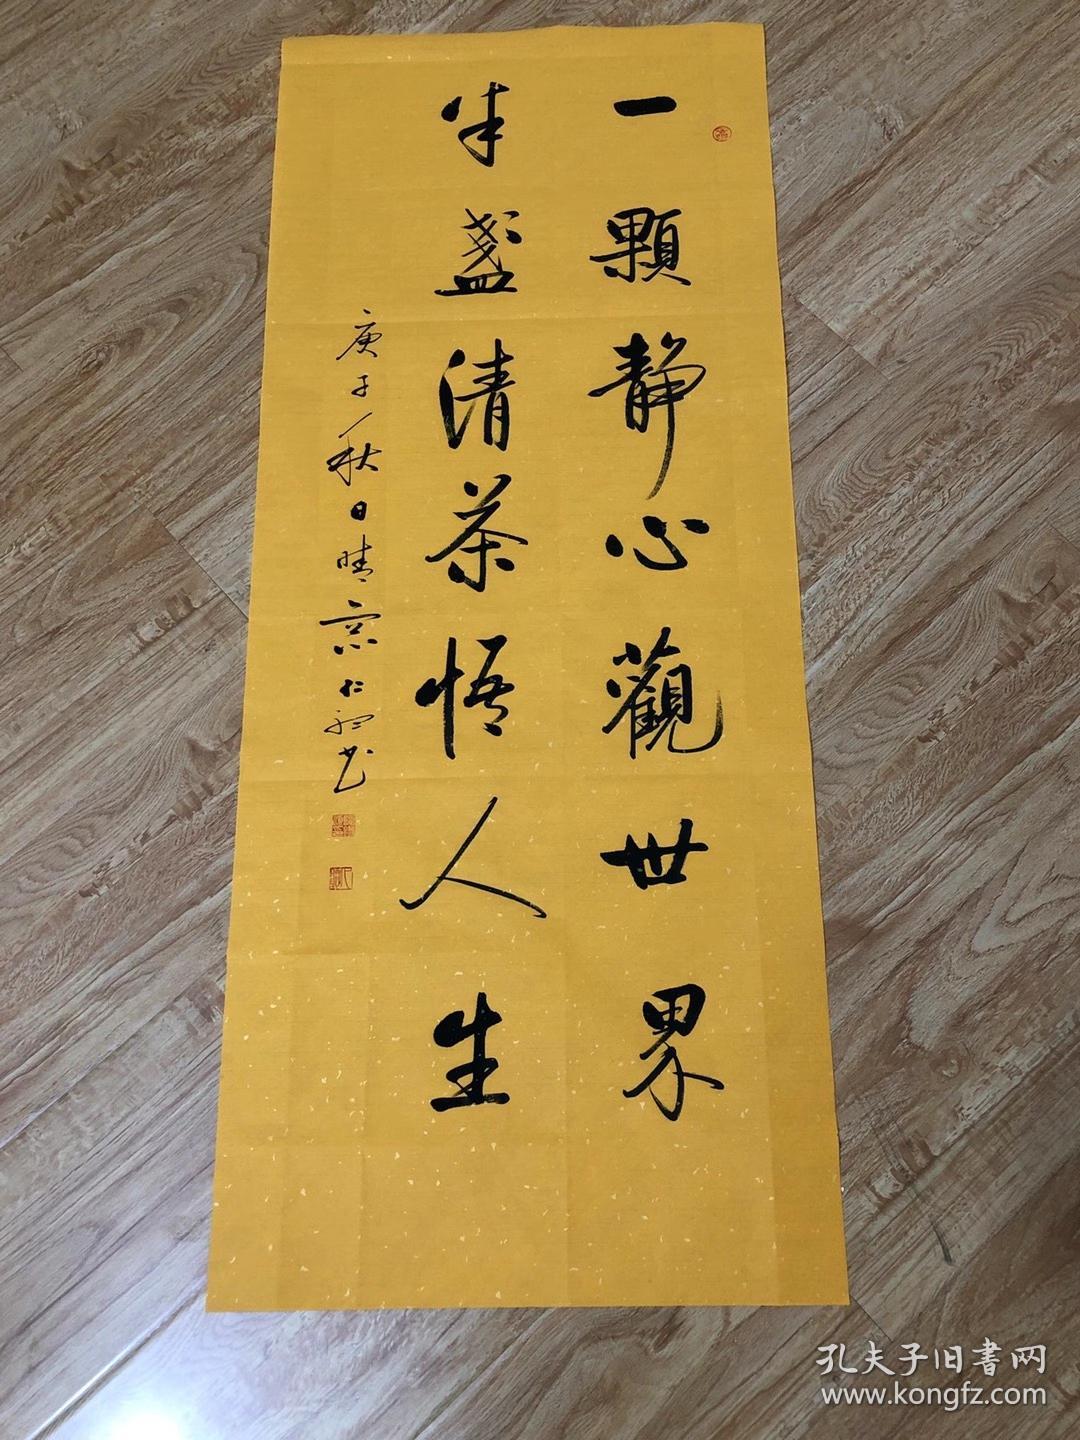 一顆靜心觀世界
半盞清茶悟人生
庚子秋日晴窓仁
书
孔夫子旧書网
www.kongfz.com